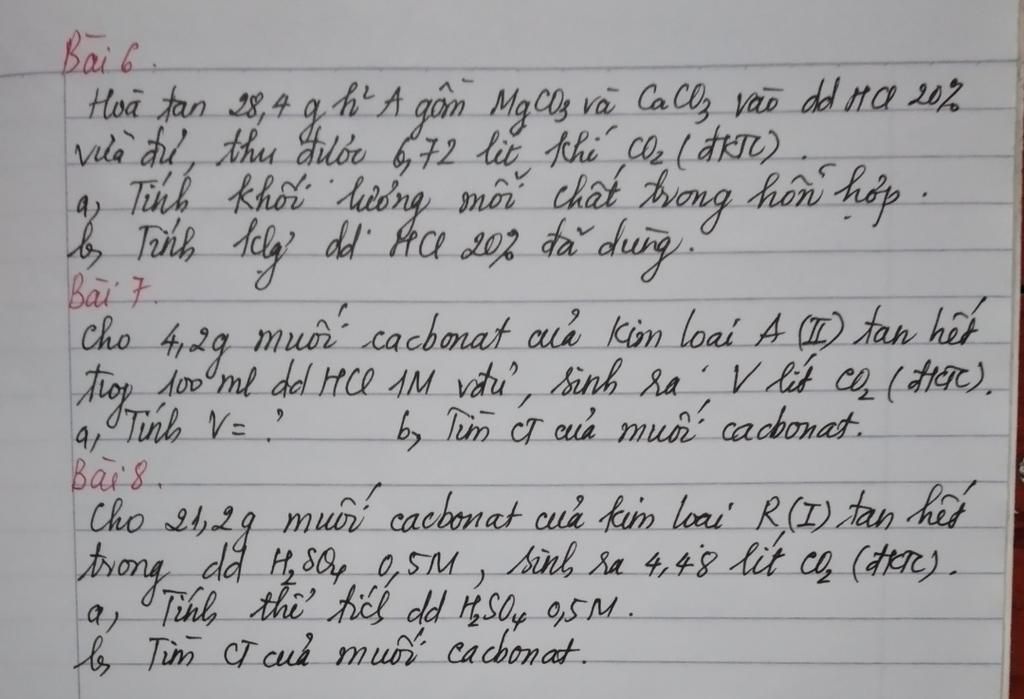 Bài 6.
Hoà tan 28,4 g h² A gồm MgCO₃ và CaCO₃ vào dd HCl 20%
vừa đủ, thu được 6,72 lít khí CO₂ (đktc).
a, Tính khối lượng mỗi chất trong hỗn hợp.
b, Tính klg dd HCl 20% đã dùng.
Bài 7.
Cho 4,2g muối cacbonat của kim loại A (II) tan hết
trog 100 ml dd HCl 1M vđủ, sinh ra V lít CO₂ (đktc).
a, Tính V = ? b, Tìm CT của muối cacbonat.
Bài 8.
Cho 21,2g muối cacbonat của kim loại R (I) tan hết
trong dd H₂SO₄ 0,5M, sinh ra 4,48 lít CO₂ (đktc).
a, Tính thể tích dd H₂SO₄ 0,5M.
b, Tìm CT của muối cacbonat.